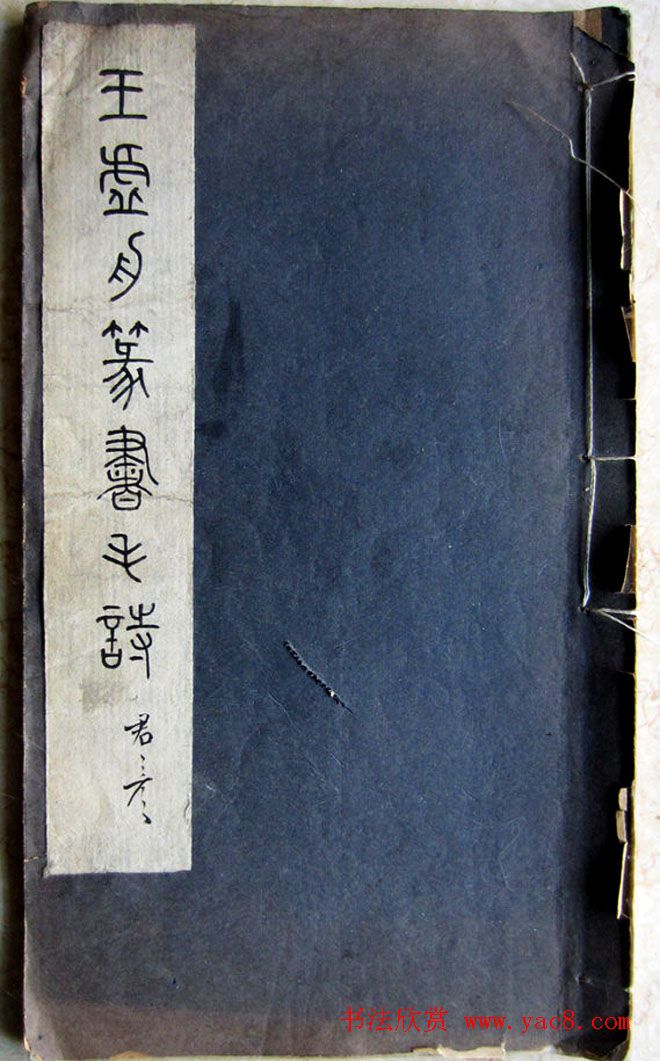 王虛舟篆書毛詩
书法欣赏 www.yac8.com